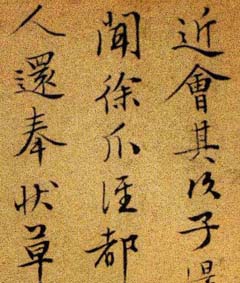 近會其次子
聞徐爪都
人還奉狀草